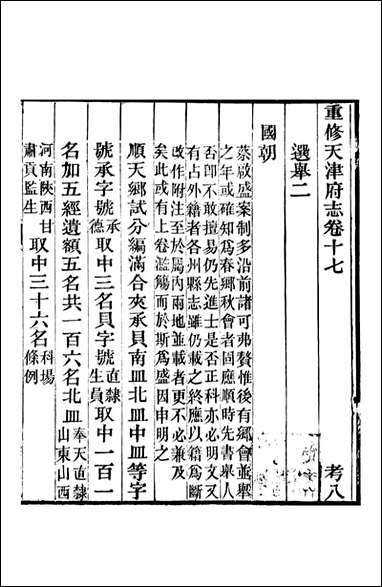 重修天津府志卷十七　考八
選舉二
國朝
蔡啟盛案制多沿前諸可弗贅惟後有鄉會並舉
之年或確知為春鄉秋會者固應順時先書舉人
否卽不敢擅易仍先進士是否正科亦必明文又
有占外籍者各州縣志雖仍載之終應以籍為斷
改作附注至於屬內兩地並載者更不必兼及
矣此或有上卷濫觴而於斯為盛因申明之
順天鄉試分編滿合夾承貝南皿北皿中皿等字
號承字號承德取中三名貝字號直隸生員取中一百一
名加五經遺額五名共一百六名北皿奉天直隸山東山西
河南陝西甘肅貢監生取中三十六名科場條例